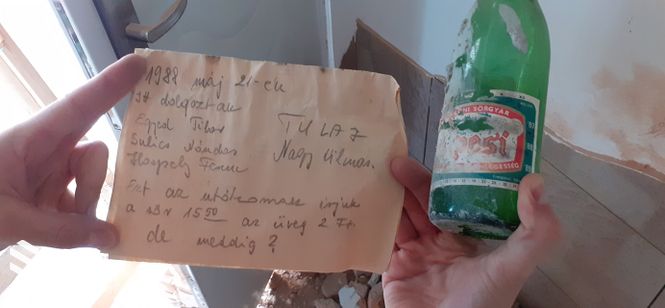 1988 máj 21-én
Itt dolgoztak
Egyed Tibor
Sulics Nándor
Ferenc
TULAJ
Nagy Vilmos.
Ezt az utókornak írjuk
a sör 15 50 az üveg 2 Ft.
de meddig?
NI SÖRGYÁR
pesti